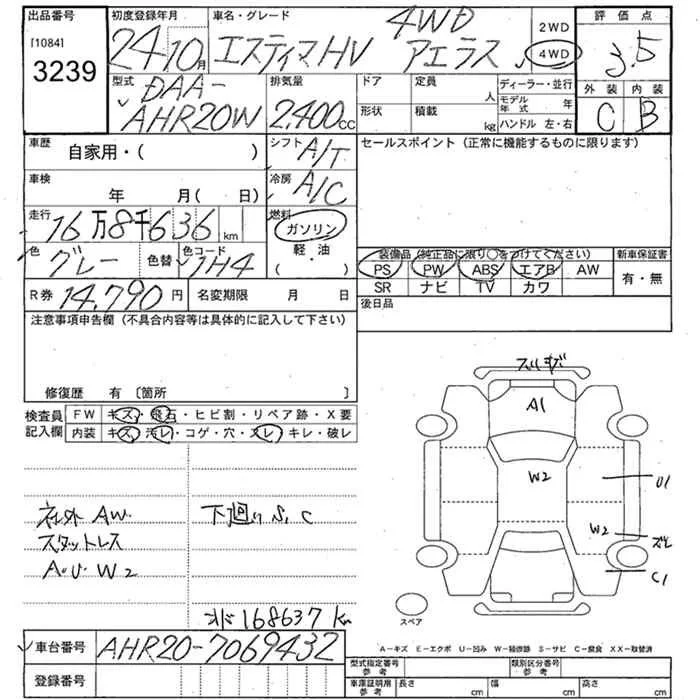 出品番号 初度登録年月 車名・グレード 4WD 2WD 評価点
[1084] 24年10月 エスティマHV アエラス 4WD 3.5
3239
型式 DAA- 排気量 ドア 定員 人 ディーラー・並行 外装 内装
AHR20W 2,400cc 形状 積載 kg モデル年式 年 C B
ハンドル 左・右
車歴 自家用・( ) シフト A/T セールスポイント(正常に機能するものに限ります)
車検 年 月(日) 冷房 A/C
走行 16万8千636km 燃料 ガソリン
軽・油
色 グレー 色替 色コード 1H4 装備品(純正品に限り○をつけてください) 新車保証書
PS PW ABS エアB AW 有・無
SR ナビ TV カワ
R券 14,790円 名変期限 月 日 後日品
注意事項申告欄(不具合内容等は具体的に記入して下さい)
修復歴 有〔箇所 〕
検査員 FW キズ・飛石・ヒビ割・リペア跡・X要
記入欄 内装 キズ・汚レ・コゲ・穴・スレ・キレ・破レ
A1
W2
U1
W2
C1
社外AW 下廻りS,C
スタットレス
A.U W2
168637km
スペア
A－キズ E－エクボ U－凹み W－補修跡 S－サビ C－腐食 XX－取替済
車台番号 AHR20-7069432
登録番号
型式指定番号 参考 類別区分番号 参考
車庫証明用 参考 長さ cm 幅 cm 高さ cm